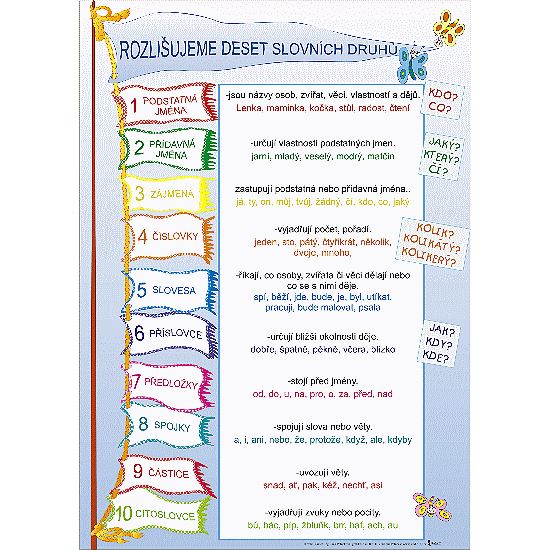 ROZLIŠUJEME DESET SLOVNÍCH DRUHŮ
1 PODSTATNÁ
JMÉNA
-jsou názvy osob, zvířat, věcí, vlastností a dějů.
Lenka, maminka, kočka, stůl, radost, čtení
KDO?
CO?
2 PŘÍDAVNÁ
JMÉNA
-určují vlastnosti podstatných jmen.
jarní, mladý, veselý, modrý, matčin
JAKÝ?
KTERÝ?
ČÍ?
3 ZÁJMENA
zastupují podstatná nebo přídavná jména..
já, ty, on, můj, tvůj, žádný, čí, kdo, co, jaký
4 ČÍSLOVKY
-vyjadřují počet, pořadí.
jeden, sto, pátý, čtyřikrát, několik,
dvoje, mnoho,
KOLIK?
KOLIKÁTÝ?
KOLIKERÝ?
5 SLOVESA
-říkají, co osoby, zvířata či věci dělají nebo
co se s nimi děje.
spí, běží, jde, bude, je, byl, utíkat,
pracuji, bude malovat, psala
6 PŘÍSLOVCE
-určují bližší okolnosti děje.
dobře, špatně, pěkně, včera, blízko
JAK?
KDY?
KDE?
7 PŘEDLOŽKY
-stojí před jmény.
od, do, u, na, pro, o, za, před, nad
8 SPOJKY
-spojují slova nebo věty.
a, i, ani, nebo, že, protože, když, ale, kdyby
9 ČÁSTICE
-uvozují věty.
snad, ať, pak, kéž, nechť, asi
10 CITOSLOVCE
-vyjadřují zvuky nebo pocity.
bú, hác, píp, žbluňk, brr, haf, ach, au